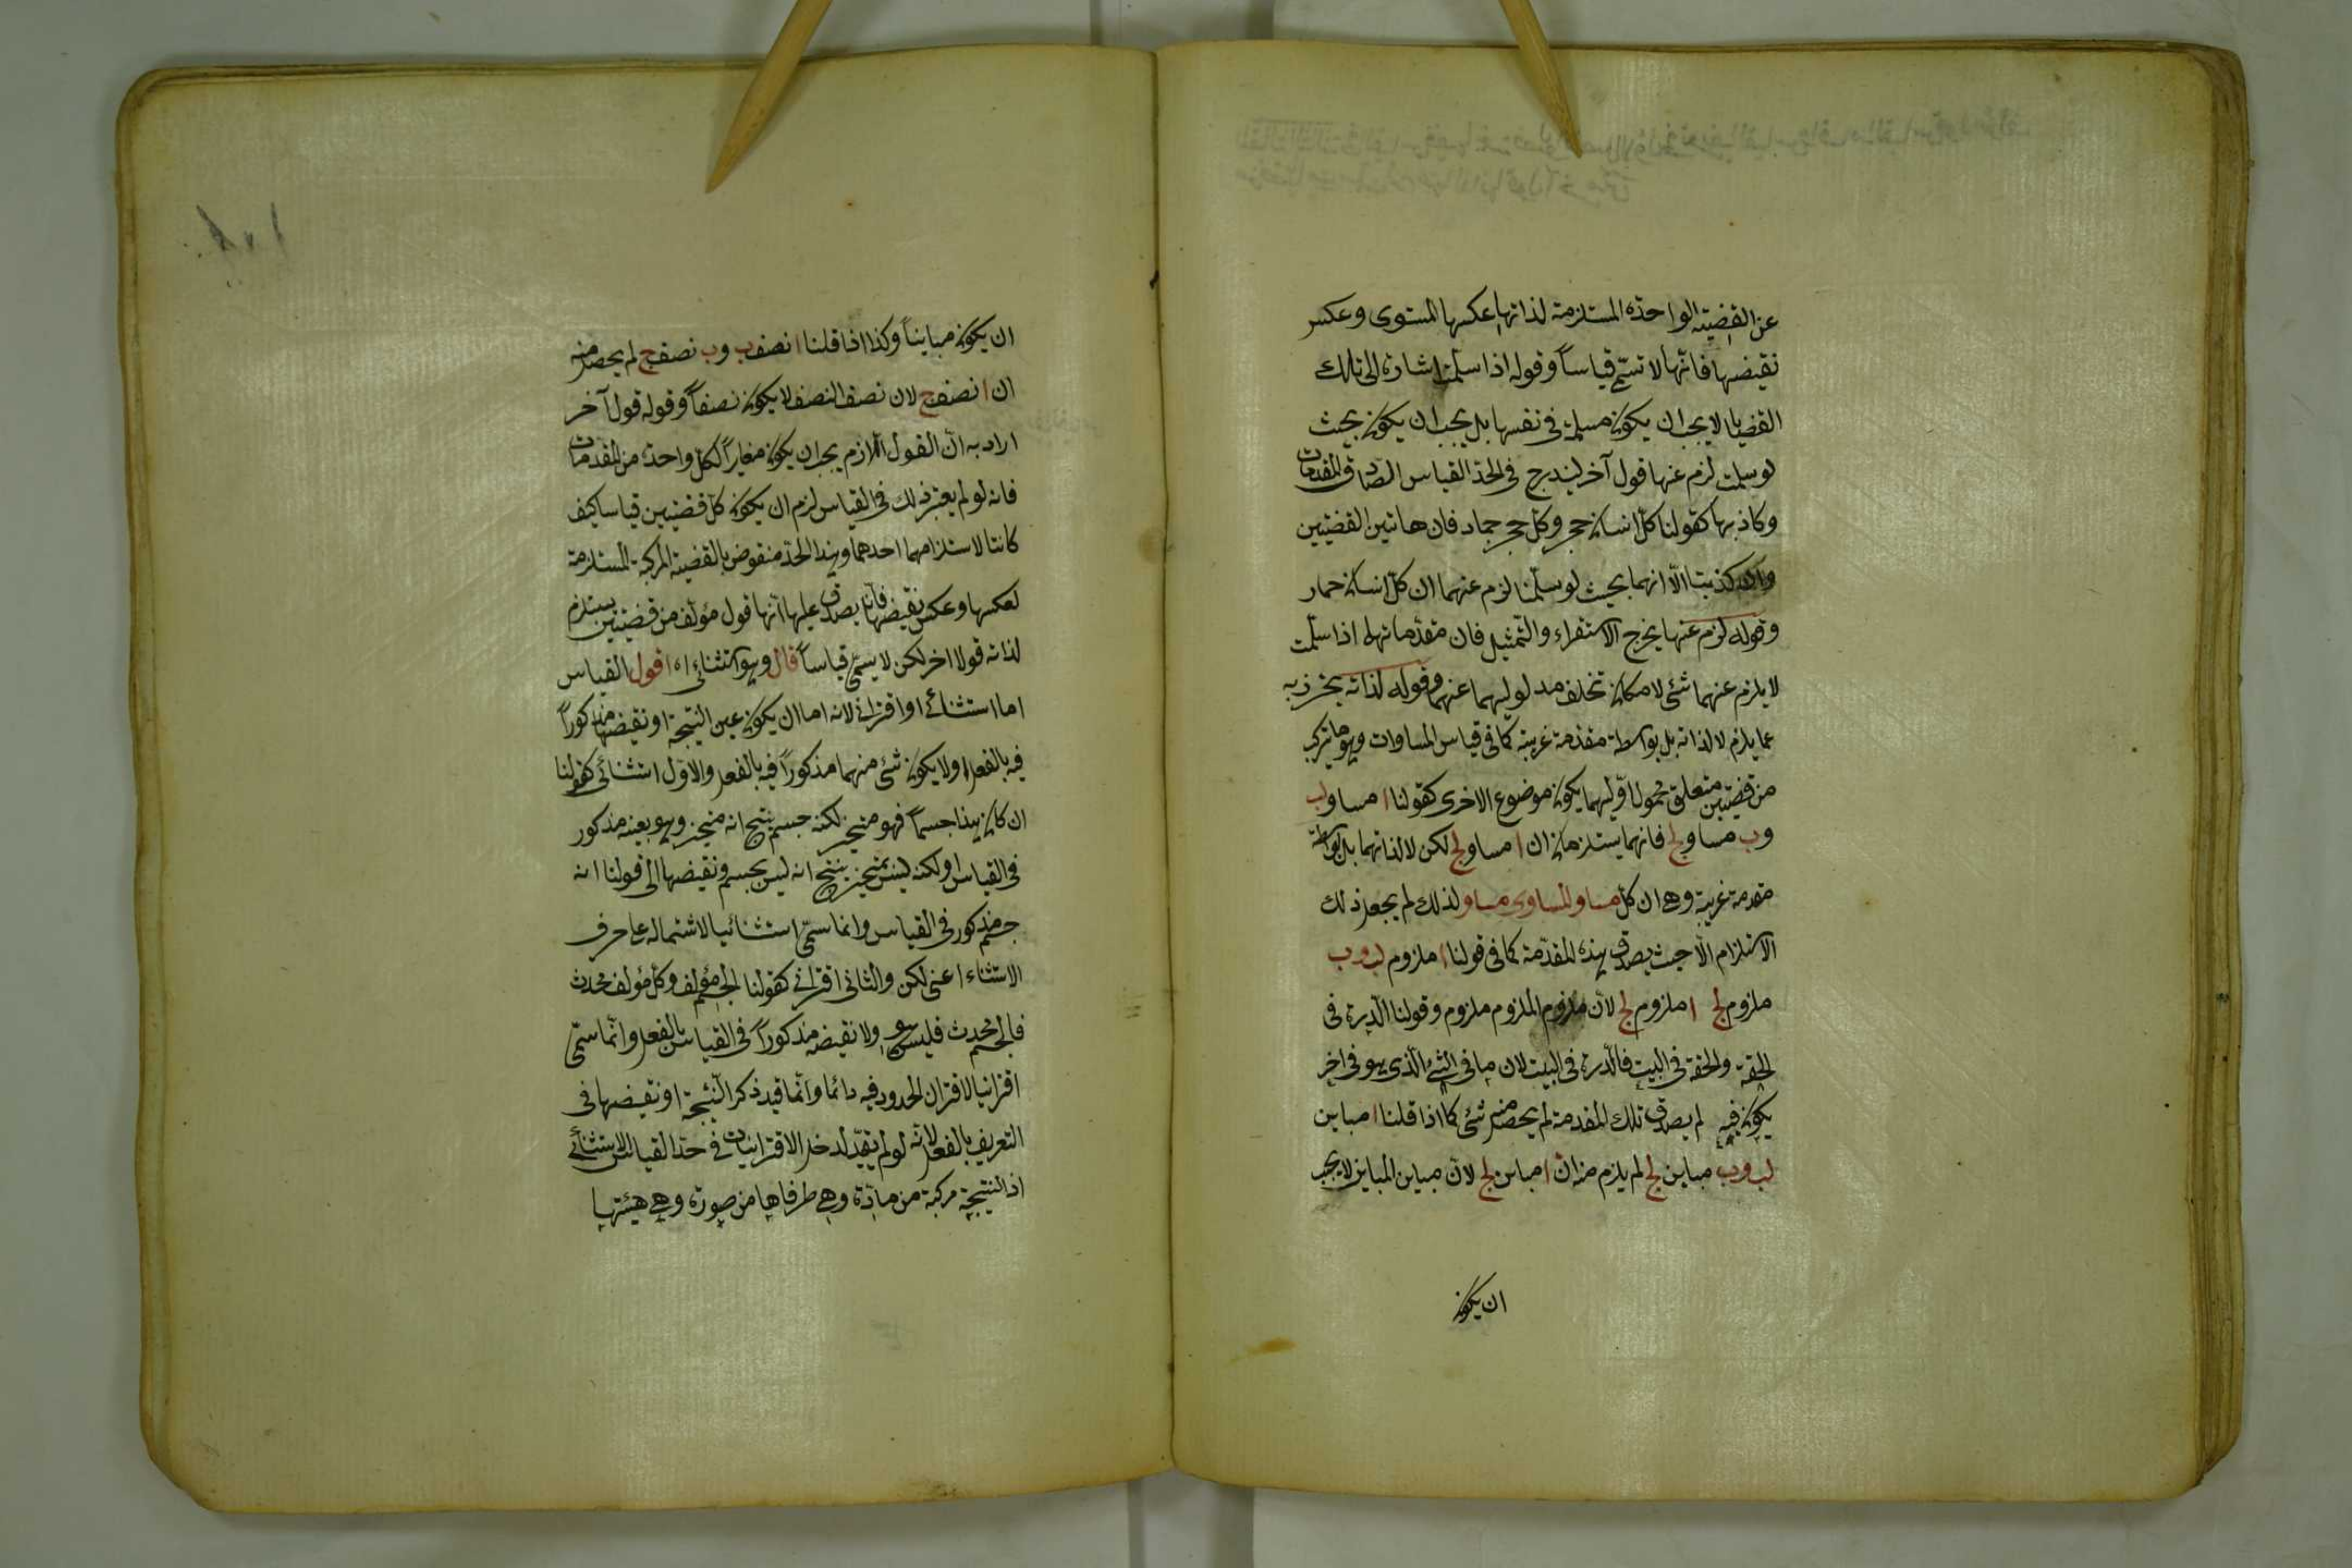 عن القضيته الواحدة المستلزمة لذاتها عكسها المستوى وعكس
نقيضها فانّها لا تسمّى قياساً وقوله اذا سلمت اشارة الى ان تلك
القضايا لا يجب ان يكون مسلمة فى نفسها بل يجب ان يكون بحيث
لو سلمت لزم عنها قول آخر ليندرج فى الحدّ القياس الصّادق المقدمات
وكاذبها كقولنا كلّ انسان حجر وكلّ حجر جماد فان هاتين القضيتين
وان كذبتا الّا انهما بحيث لو سلّمتا لزم عنهما ان كلّ انسان حمار
وقوله لزم عنها يخرج الاستقراء والتّمثيل فان مقدّماتها اذا سلّمت
لا يلزم عنهما شئ لامكان تخلف مدلوليهما عنهما وقوله لذاته يحترز به
عما يلزم لا لذاته بل بواسطة مقدّمة غريبة كما فى قياس المساوات وهو ما يتركب
من قضيّتين متعلق محمول اوّليهما يكون موضوع الاخرى كقولنا ا مساو لب
وب مساو لج فانهما يستلزمان ان ا مساو لج لكن لا لذاتهما بل بواسطة
مقدمة غريبة وهى ان كل مساو للمساوى مساو ولذلك لم يجعل ذلك
الاستلزام الّا حيث يصدق هذه المقدّمة كما فى قولنا ا ملزوم لب وب
ملزوم لج ا ملزوم لج لانّ ملزوم الملزوم ملزوم وقولنا الدّرة فى
الحقة والحقة فى البيت فالدّرة فى البيت لان ما فى الشئ الّذى هو فى اخر
يكون فيه لم يصدق تلك المقدمة لم يحصل منه شئ كما اذا قلنا ا مباين
لب وب مباين لج لم يلزم منه انّ ا مباين لج لانّ مباين المباين لا يجب
ان يكون
ان يكون مبايناً وكذا اذا قلنا ا نصف ب وب نصف ج لم يحصل منه
ان ا نصف ج لان نصف النصف لا يكون نصفاً وقوله قول آخر
اراد به انّ القول اللازم يجب ان يكون مغايراً لكل واحدة من المقدمات
فانه لو لم يعتبر ذلك فى القياس لزم ان يكون كلّ قضيتين قياسا كيف
كانتا لاستلزامهما احدهما وهذا الحدّ منقوض بالقضية المركبة المستلزمة
لعكسها وعكس نقيضها فانّه يصدق عليها انّها قول مؤلّف من قضيتين يستلزم
لذاته قولا اخر لكن لا يسمّى قياساً قال وهو استثنائى اه اقول القياس
اما استثنائى او اقترانى لانه اما ان يكون عين النتيجة او نقيضها مذكوراً
فيه بالفعل او لا يكون شئ منهما مذكوراً فيه بالفعل والاوّل استثنائى كقولنا
ان كان هذا جسماً فهو متحيز لكنه جسم ينتج انه متحيز وهو بعينه مذكور
فى القياس او لكنه ليس بمتحيز ينتج انه ليس بجسم ونقيضها اى قولنا انه
جسم مذكور فى القياس وانما سمّى استثنائيا لاشتماله على حرف
الاستثناء اعنى لكن والثانى اقترانى كقولنا الجسم مؤلف وكل مؤلف محدث
فالجسم محدث فليس هو ولا نقيضه مذكوراً فى القياس بالفعل وانّما سمّى
اقترانيا لاقتران الحدود فيه دائما وانّما قيد ذكر النتيجة او نقيضها فى
التعريف بالفعل لانّه لو لم يقيّد لدخل الاقترانيات فى حدّ القياس الاستثنائى
اذ النتيجة مركبة من مادّة وهى طرفاها من صورة وهى هيئتها